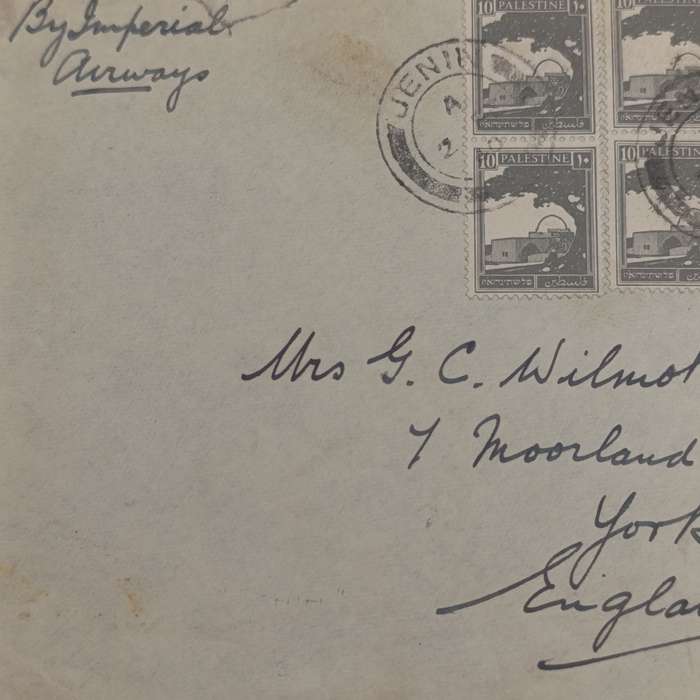 By Imperial
Airways
10 PALESTINE ١٠
פלשתינה א״י فلسطين
10 PALESTINE
10 PALESTINE ١٠
פלשתינה א״י فلسطين
10 PALESTINE
פלשתינה א״י فلسطين
JENIN
A
2
Mrs G. C. Wilmot
7 Moorland
York
England